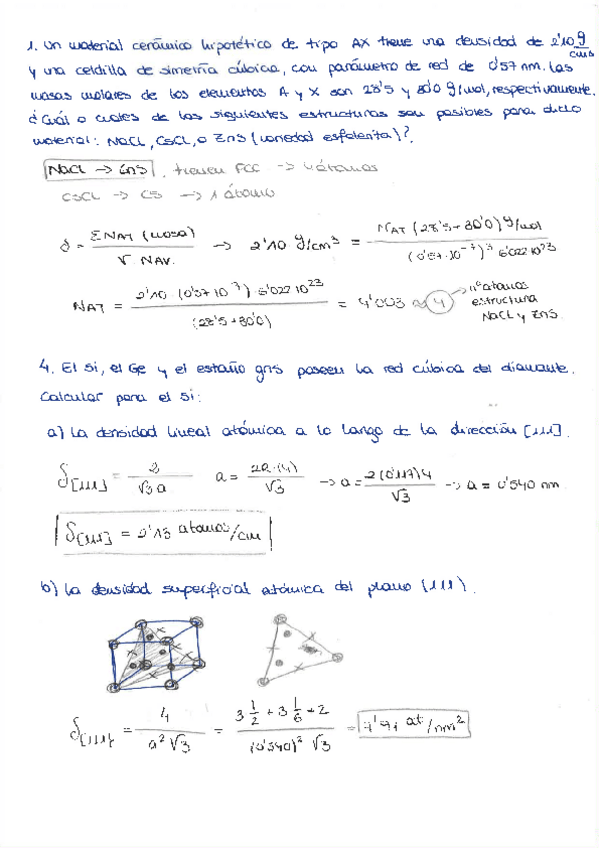 1. Un material cerámico hipotético de tipo AX tiene una densidad de 2'10 g/cm3
y una celdilla de simetría cúbica, con parámetro de red de 0'57 nm. Las
masas molares de los elementos A y X son 28'5 y 80'0 g/mol, respectivamente.
¿Cuál o cuales de las siguientes estructuras son posibles para dicho
material: NaCl, CsCl, o ZnS (variedad esfalerita)?
NaCl → ZnS, tienen FCC → 4 átomos
CsCl → CS → 1 átomo
δ = ΣNAT (masa) / V NAV. → 2'10 g/cm³ = NAT (28'5+80'0) g/mol / (0'57·10⁻⁷)³ 6'022 10²³
NAT = 2'10 · (0'57 10⁻⁷) · 6'022 10²³ / (28'5+80'0) = 4'003 ≈ 4 → nº átomos
estructura
NaCl y ZnS.
4. El Si, el Ge y el estaño gris poseen la red cúbica del diamante.
Calcular para el Si:
a) La densidad lineal atómica a lo largo de la dirección [111].
δ[111] = 2 / √3 a   a = 2R·(4) / √3 → a = 2(0'117)4 / √3 → a = 0'540 nm
δ[111] = 2'13 átomos/cm
b) La densidad superficial atómica del plano (111).
δ(111) = 4 / a²√3 = 3 1/2 + 3 1/6 + 2 / (0'540)² √3 = 7'91 at/nm²